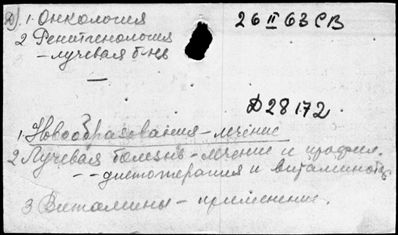 1. Онкология
26 II 63 СВ
2 Рентгенология
- лучевая б-нь
Д28172
1 Новообразования - лечение
2 Лучевая болезнь - лечение и профил.
- - диетотерапия и витамин
3 Витамины - применение.